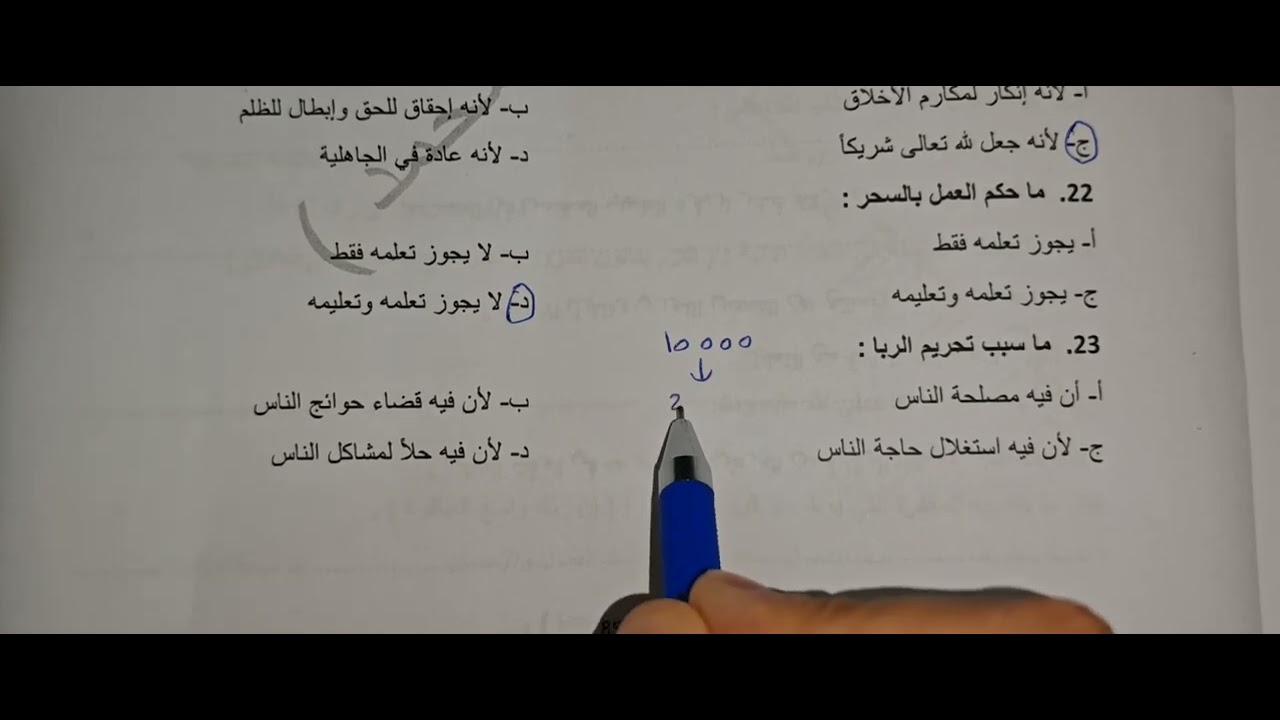 أ- لأنه إنكار لمكارم الأخلاق ب- لأنه إحقاق للحق وإبطال للظلم
ج- لأنه جعل لله تعالى شريكاً د- لأنه عادة في الجاهلية
22. ما حكم العمل بالسحر :
أ- يجوز تعلمه فقط ب- لا يجوز تعلمه فقط
ج- يجوز تعلمه وتعليمه د- لا يجوز تعلمه وتعليمه
23. ما سبب تحريم الربا : 10000
أ- أن فيه مصلحة الناس 2 ب- لأن فيه قضاء حوائج الناس
ج- لأن فيه استغلال حاجة الناس د- لأن فيه حلاً لمشاكل الناس